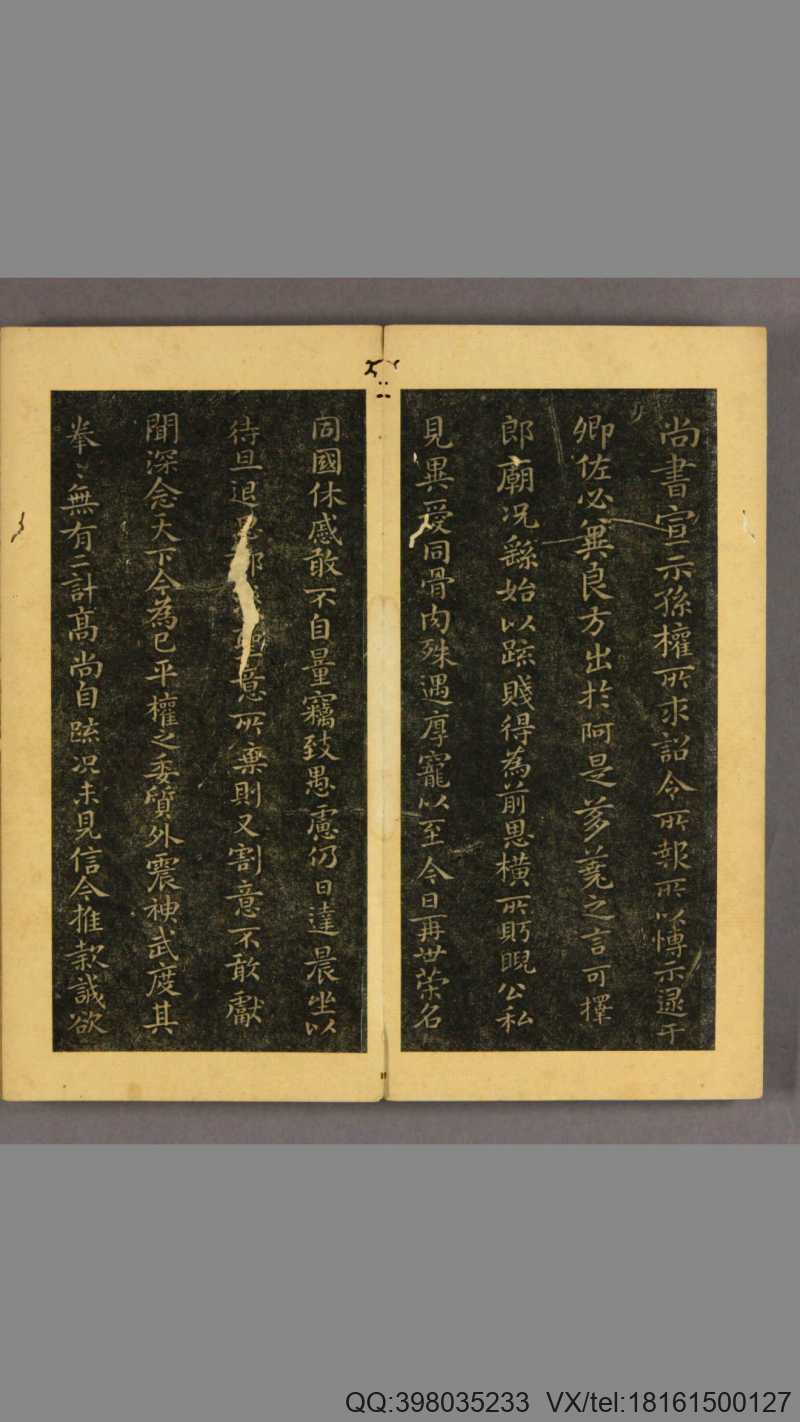 尚書宣示孫權所求詔令所報所以博示逮于
卿佐必冀良方出於阿是芻蕘之言可擇
郎廟況繇始以疏賤得為前恩橫所眄睨公私
見異愛同骨肉殊遇厚寵以至今日再世榮名
同國休慼敢不自量竊致愚慮仍日達晨坐以
待旦退思意所棄則又割意不敢獻
聞深念天下今為已平權之委質外震神武度其
拳〻無有二計高尚自疏況未見信今推款誠欲
QQ:398035233 VX/tel:18161500127